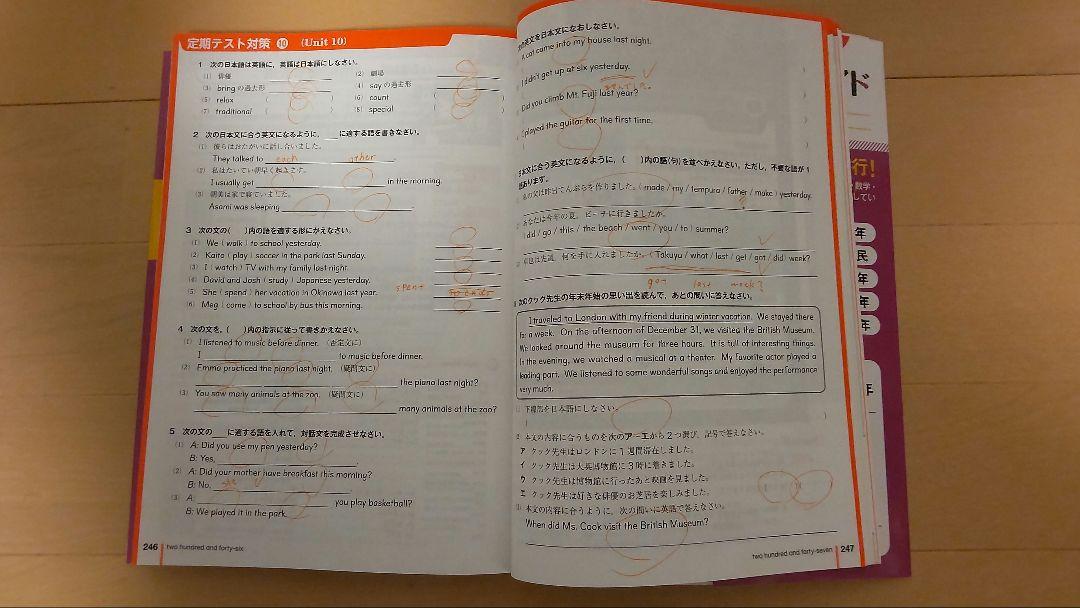 定期テスト対策 10 (Unit 10)
1 次の日本語は英語に，英語は日本語にしなさい。
(1) 俳優
(2) 劇場
(3) bring の過去形
(4) say の過去形
(5) relax ( )
(6) count ( )
(7) traditional ( )
(8) special ( )
2 次の日本文に合う英文になるように，___に適する語を書きなさい。
(1) 彼らはおたがいに話し合いました。
They talked to each other.
(2) 私はたいてい朝早く起きます。
I usually get ___ in the morning.
(3) 朝美は家で寝ていました。
Asami was sleeping
3 次の文の( )内の語を適する形にかえなさい。
(1) We ( walk ) to school yesterday.
(2) Kaito ( play ) soccer in the park last Sunday.
(3) I ( watch ) TV with my family last night.
(4) David and Josh ( study ) Japanese yesterday.
(5) She ( spend ) her vacation in Okinawa last year. spent
(6) Meg ( come ) to school by bus this morning.
4 次の文を，( )内の指示に従って書きかえなさい。
(1) I listened to music before dinner. (否定文に)
I ___ to music before dinner.
(2) Emma practiced the piano last night. (疑問文に)
___ the piano last night?
(3) You saw many animals at the zoo. (疑問文に)
___ many animals at the zoo?
5 次の文の___に適する語を入れて，対話文を完成させなさい。
(1) A: Did you use my pen yesterday?
B: Yes,
(2) A: Did your mother have breakfast this morning?
B: No, she
(3) A: ___ you play basketball?
B: We played it in the park.
246 two hundred and forty-six
の英文を日本文になおしなさい。
cat came into my house last night.
I didn't get up at six yesterday.
Did you climb Mt. Fuji last year?
I played the guitar for the first time.
日本文に合う英文になるように，( )内の語(句)を並べかえなさい。ただし，不要な語が1
語あります。
の父は昨日てんぷらを作りました。( made / my / tempura / father / make ) yesterday.
あなたは今年の夏，ビーチに行きましたか。
( did / go / this / the beach / went / you / to ) summer?
は先週，何を手に入れましたか。( Takuyu / what / last / get / got / did ) week?
got last week?
次のクック先生の年末年始の思い出を読んで，あとの問いに答えなさい。
I traveled to London with my friend during winter vacation. We stayed there
for a week. On the afternoon of December 31, we visited the British Museum.
We looked around the museum for three hours. It is full of interesting things.
In the evening, we watched a musical at a theater. My favorite actor played a
leading part. We listened to some wonderful songs and enjoyed the performance
very much.
下線部を日本語にしなさい。
本文の内容に合うものを次のア〜エから2つ選び，記号で答えなさい。
ア クック先生はロンドンに1週間滞在しました。
イ クック先生は大英博物館に3時に着きました。
ウ クック先生は博物館に行ったあと映画を見ました。
エ クック先生は好きな俳優のお芝居を楽しみました。
本文の内容に合うように，次の問いに英語で答えなさい。
When did Ms. Cook visit the British Museum?
two hundred and forty-seven 247
ド
行!
数学・
してい
年
民
年
年
年